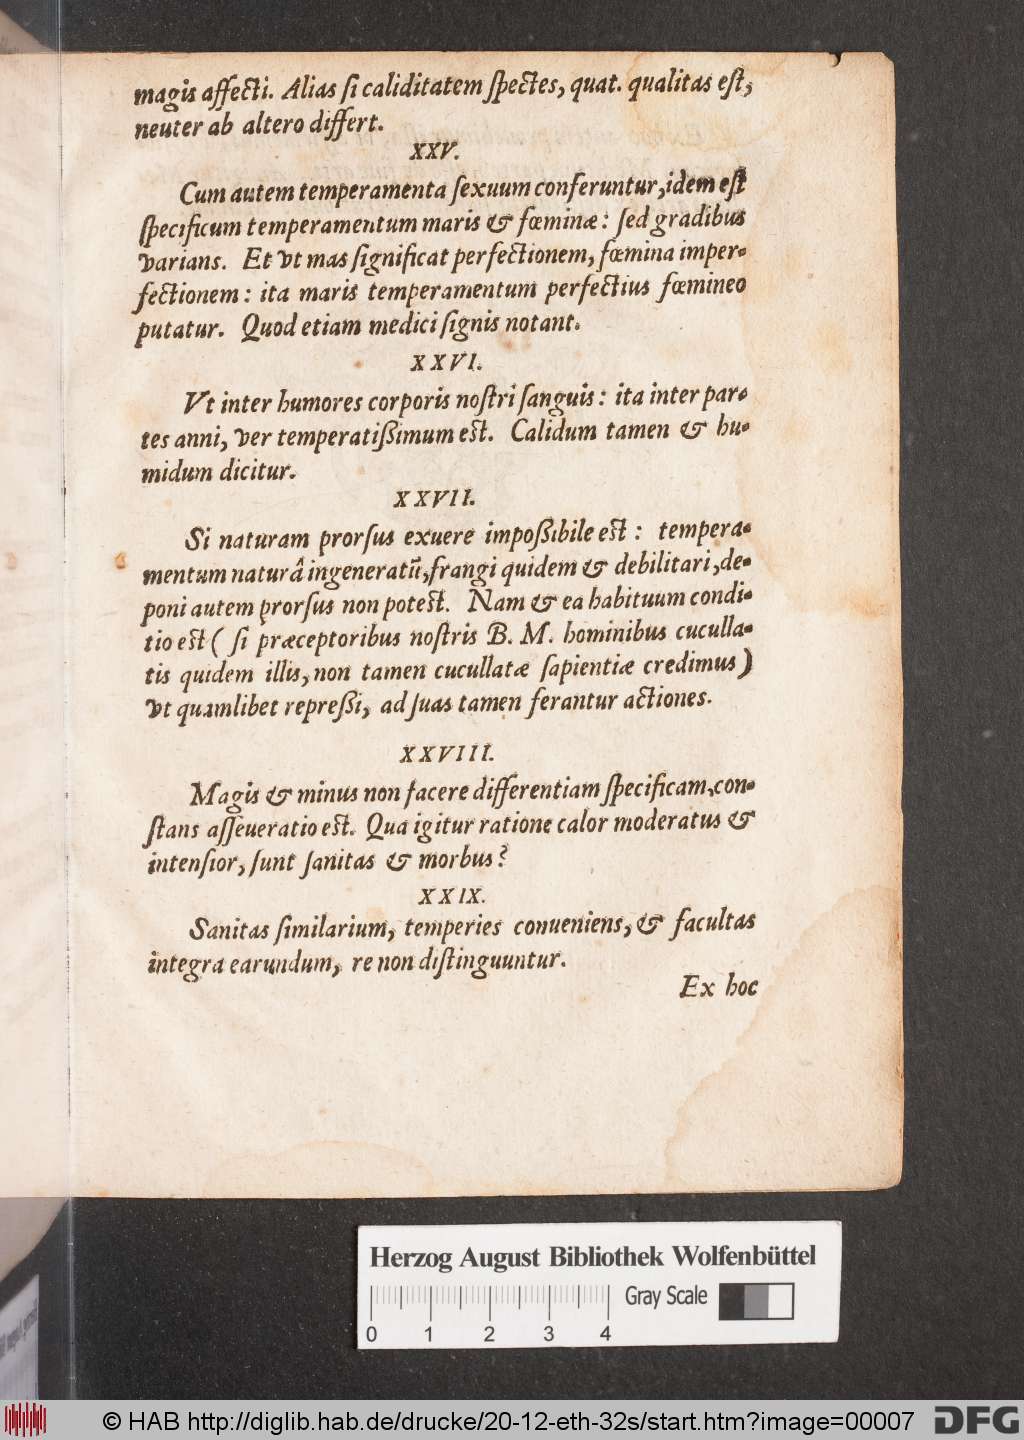 magis affecti. Alias si caliditatem spectes, quat. qualitas est,
neuter ab altero differt.
XXV.
Cum autem temperamenta sexuum conferuntur, idem est
specificum temperamentum maris & fœminæ: sed gradibus
varians. Et vt mas significat perfectionem, fœmina imper-
fectionem: ita maris temperamentum perfectius fœmineo
putatur. Quod etiam medici signis notant.
XXVI.
Vt inter humores corporis nostri sanguis: ita inter par-
tes anni, ver temperatißimum est. Calidum tamen & hu-
midum dicitur.
XXVII.
Si naturam prorsus exuere impoßibile est: tempera-
mentum naturâ ingeneratũ, frangi quidem & debilitari, de-
poni autem prorsus non potest. Nam & ea habituum condi-
tio est ( si præceptoribus nostris B. M. hominibus cuculla-
tis quidem illis, non tamen cucullatæ sapientiæ credimus )
vt quamlibet repreßi, ad suas tamen ferantur actiones.
XXVIII.
Magis & minus non facere differentiam specificam, con-
stans asseueratio est. Qua igitur ratione calor moderatus &
intensior, sunt sanitas & morbus?
XXIX.
Sanitas similarium, temperies conueniens, & facultas
integra earundum, re non distinguuntur.
Ex hoc
Herzog August Bibliothek Wolfenbüttel
Gray Scale
0 1 2 3 4
© HAB http://diglib.hab.de/drucke/20-12-eth-32s/start.htm?image=00007
DFG